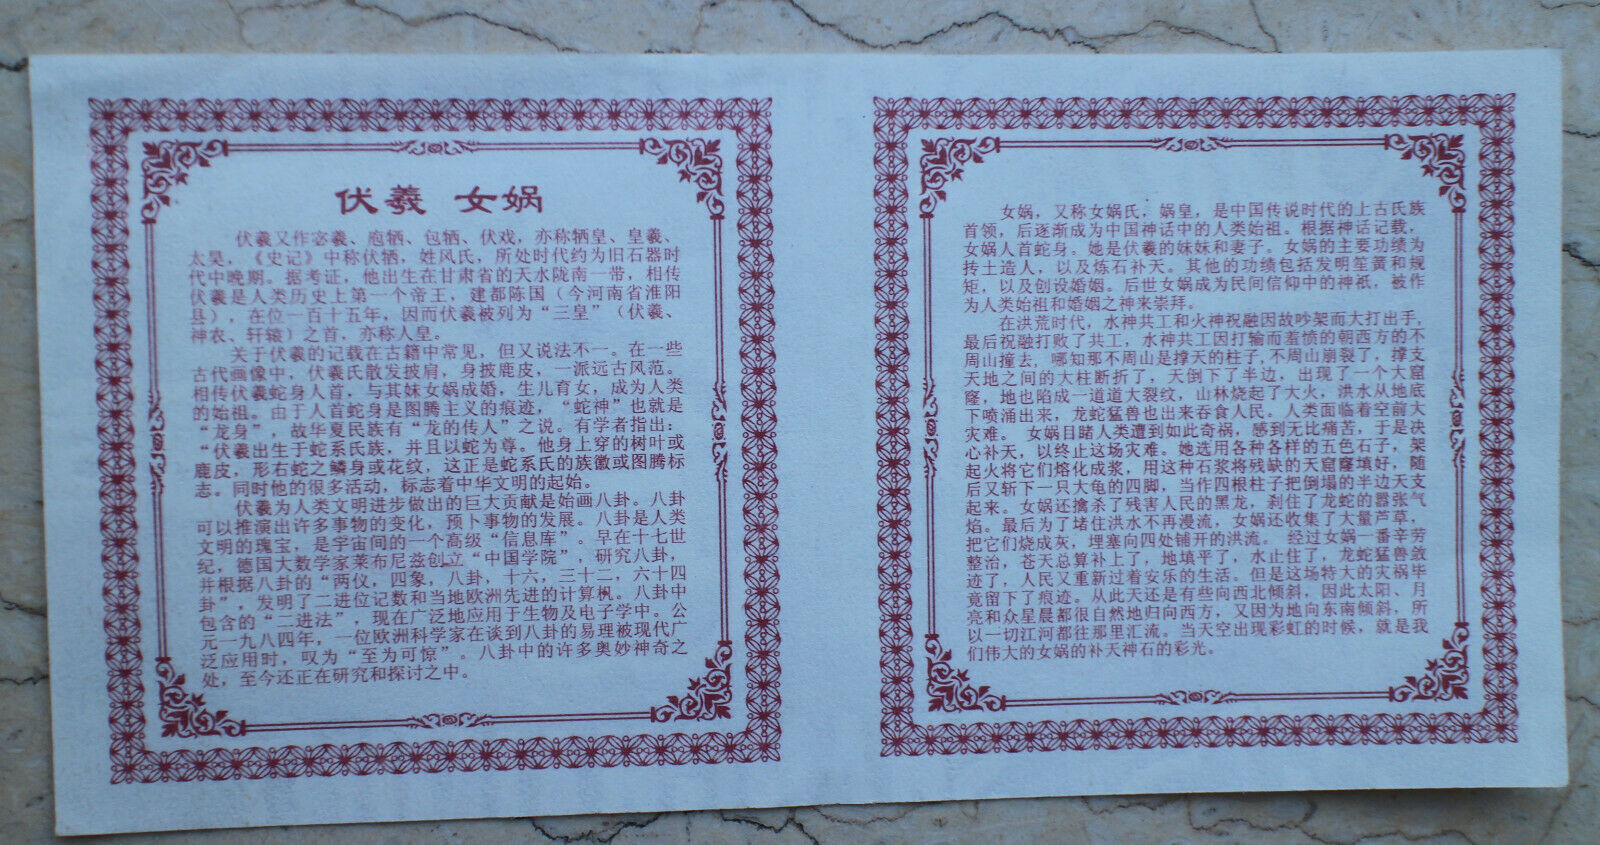 伏羲 女娲
伏羲又作宓羲、庖牺、包牺、伏戏，亦称牺皇、皇羲、
太昊，《史记》中称伏牺，姓风氏，所处时代约为旧石器时
代中晚期。据考证，他出生在甘肃省的天水陇南一带，相传
伏羲是人类历史上第一个帝王，建都陈国（今河南省淮阳
县），在位一百十五年，因而伏羲被列为“三皇”（伏羲、
神农、轩辕）之首，亦称人皇。
关于伏羲的记载在古籍中常见，但又说法不一。在一些
古代画像中，伏羲氏散发披肩，身披鹿皮，一派远古风范。
相传伏羲蛇身人首，与其妹女娲成婚，生儿育女，成为人类
的始祖。由于人首蛇身是图腾主义的痕迹，“蛇神”也就是
“龙身”，故华夏民族有“龙的传人”之说。有学者指出：
“伏羲出生于蛇系氏族，并且以蛇为尊。他身上穿的树叶或
鹿皮，形右蛇之鳞身或花纹，这正是蛇系氏的族徽或图腾标
志。同时他的很多活动，标志着中华文明的起始。
伏羲为人类文明进步做出的巨大贡献是始画八卦。八卦
可以推演出许多事物的变化，预卜事物的发展。八卦是人类
文明的瑰宝，是宇宙间的一个高级“信息库”。早在十七世
纪，德国大数学家莱布尼兹创立“中国学院”，研究八卦，
并根据八卦的“两仪，四象，八卦，十六，三十二，六十四
卦”，发明了二进位记数和当地欧洲先进的计算枫。八卦中
包含的“二进法”，现在广泛地应用于生物及电子学中。公
元一九八四年，一位欧洲科学家在谈到八卦的易理被现代广
泛应用时，叹为“至为可惊”。八卦中的许多奥妙神奇之
处，至今还正在研究和探讨之中。
女娲，又称女娲氏，娲皇，是中国传说时代的上古氏族
首领，后逐渐成为中国神话中的人类始祖。根据神话记载，
女娲人首蛇身。她是伏羲的妹妹和妻子。女娲的主要功绩为
抟土造人，以及炼石补天。其他的功绩包括发明笙簧和规
矩，以及创设婚姻。后世女娲成为民间信仰中的神祇，被作
为人类始祖和婚姻之神来崇拜。
在洪荒时代，水神共工和火神祝融因故吵架而大打出手，
最后祝融打败了共工，水神共工因打输而羞愤的朝西方的不
周山撞去，哪知那不周山是撑天的柱子，不周山崩裂了，撑支
天地之间的大柱断折了，天倒下了半边，出现了一个大窟
窿，地也陷成一道道大裂纹，山林烧起了大火，洪水从地底
下喷涌出来，龙蛇猛兽也出来吞食人民。人类面临着空前大
灾难。 女娲目睹人类遭到如此奇祸，感到无比痛苦，于是决
心补天，以终止这场灾难。她选用各种各样的五色石子，架
起火将它们熔化成浆，用这种石浆将残缺的天窟窿填好，随
后又斩下一只大龟的四脚，当作四根柱子把倒塌的半边天支
起来。女娲还擒杀了残害人民的黑龙，刹住了龙蛇的嚣张气
焰。最后为了堵住洪水不再漫流，女娲还收集了大量芦草，
把它们烧成灰，埋塞向四处铺开的洪流。 经过女娲一番辛劳
整治，苍天总算补上了，地填平了，水止住了，龙蛇猛兽敛
迹了，人民又重新过着安乐的生活。但是这场特大的灾祸毕
竟留下了痕迹。从此天还是有些向西北倾斜，因此太阳、月
亮和众星晨都很自然地归向西方，又因为地向东南倾斜，所
以一切江河都往那里汇流。当天空出现彩虹的时候，就是我
们伟大的女娲的补天神石的彩光。